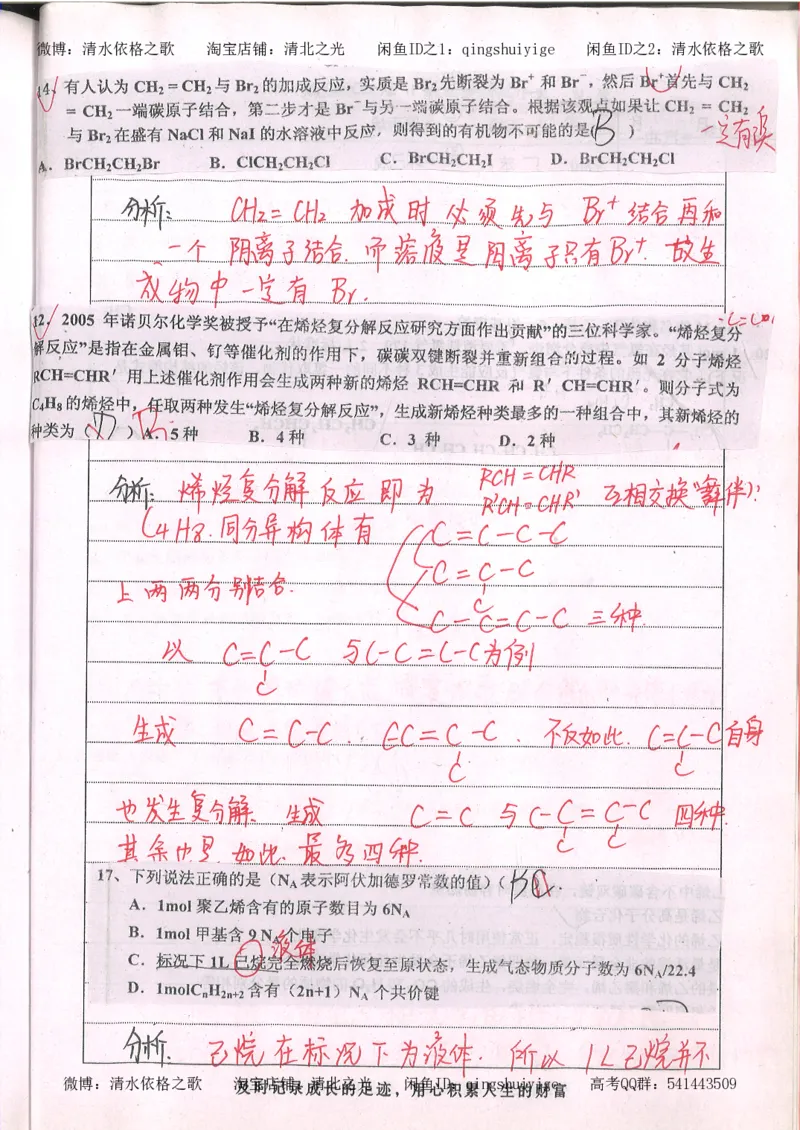 微博：清水依格之歌 淘宝店铺：清北之光 闲鱼ID之1：qingshuiyige 闲鱼ID之2：清水依格之歌
14. 有人认为 CH₂＝CH₂ 与 Br₂ 的加成反应，实质是 Br₂ 先断裂为 Br⁺ 和 Br⁻，然后 Br⁺首先与 CH₂
＝CH₂ 一端碳原子结合，第二步才是 Br⁻ 与另一端碳原子结合。根据该观点如果让 CH₂ ＝ CH₂
与 Br₂ 在盛有 NaCl 和 NaI 的水溶液中反应，则得到的有机物不可能的是( B ) 一定有溴
A．BrCH₂CH₂Br B．ClCH₂CH₂Cl C．BrCH₂CH₂I D．BrCH₂CH₂Cl
分析： CH₂=CH₂ 加成时必须先与 Br⁺ 结合再和
一个阴离子结合. 而溶液里阳离子只有Br⁺. 故生
成物中一定有 Br.
12．2005 年诺贝尔化学奖被授予“在烯烃复分解反应研究方面作出贡献”的三位科学家。“烯烃复分
解反应”是指在金属钼、钌等催化剂的作用下，碳碳双键断裂并重新组合的过程。如 2 分子烯烃
RCH=CHR′ 用上述催化剂作用会生成两种新的烯烃 RCH=CHR 和 R′CH=CHR′。则分子式为
C₄H₈ 的烯烃中，任取两种发生“烯烃复分解反应”，生成新烯烃种类最多的一种组合中，其新烯烃的
种类为（D）A．5 种 B．4 种 C．3 种 D．2 种
分析： 烯烃复分解反应即为 RCH=CHR
R'CH=CHR' 互相交换“舞伴”；
C₄H₈.同分异构体有 C=C-C-C
C=C-C
上两两分别结合. C
C-C=C-C 三种.
以 C=C-C 与C-C=C-C为例
C
生成 C=C-C . CC=C-C . 不仅如此. C=C-C自身
C C
也发生复分解. 生成 C=C 与 C-C=C-C 四种.
C C
其余 如此. 最多四种.
17、下列说法正确的是（N_A 表示阿伏加德罗常数的值）（
A．1mol 聚乙烯含有的原子数目为 6N_A
B．1mol 甲基含 9 N_A 个电子
液体
C．标况下 1L 己烷完全燃烧后恢复至原状态，生成气态物质分子数为 6N_A/22.4
D．1molCₙH₂ₙ₊₂ 含有（2n+1）N_A 个共价键
分析. 己烷在标况下为液体. 所以 1L己烷并不
微博：清水依格之歌 淘宝店铺：清北之光 闲鱼ID之1：qingshuiyige 高考QQ群：541443509
及时记录成长的足迹，用心积累人生的财富